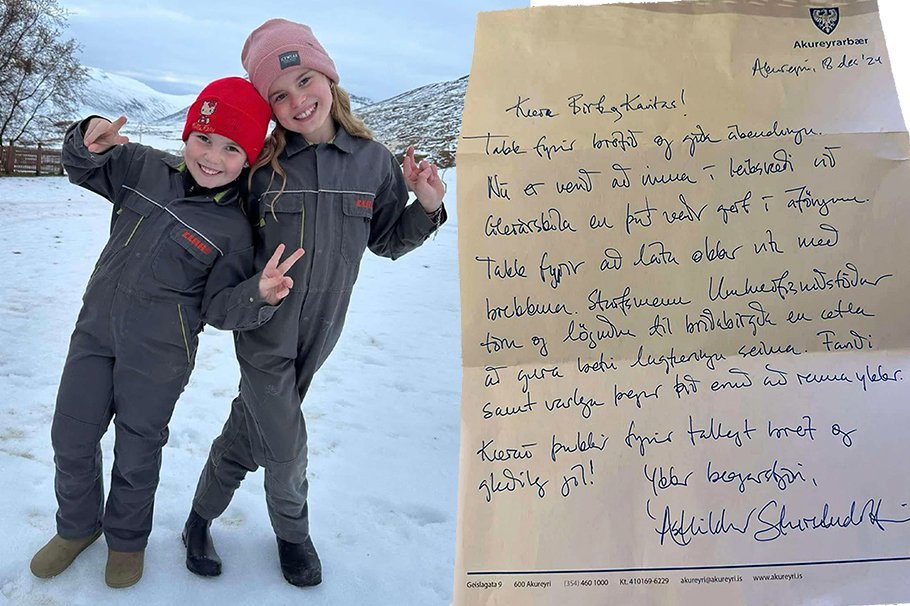 CLAAS
CLAAS
Akureyrarbær
Akureyri, 18 des '24
Kæra Birta og Karitas!
Takk fyrir bréfið og góða ábendingu.
Nú er verið að vinna í leiksvæði við
Glerárskóla en það verður gert í áföngum.
Takk fyrir að láta okkur vita með
brekkuna. Starfsmenn Umhverfismiðstöðvar
fóru og löguðu til bráðabirgða en ætla
að gera betri lagfæringu seinna. Farið
samt varlega þegar þið eruð að renna ykkur.
Kærar þakkir fyrir fallegt bréf og
gleðileg jól! Ykkar bæjarstjóri,
Ásthildur Sturludóttir
Geislagata 9 600 Akureyri (354) 460 1000 Kt. 410169-6229 akureyri@akureyri.is www.akureyri.is